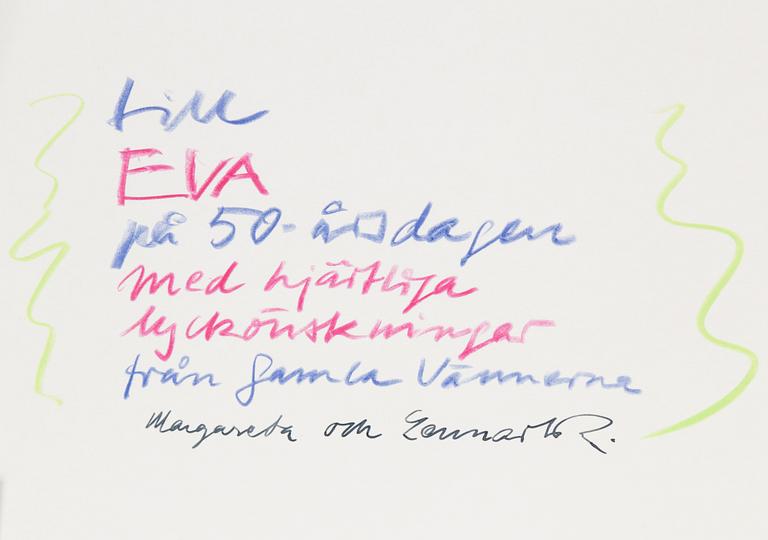 till
EVA
på 50-årsdagen
med hjärtliga
lyckönskningar
från Gamla Vännerna
Margareta och Lennart R.